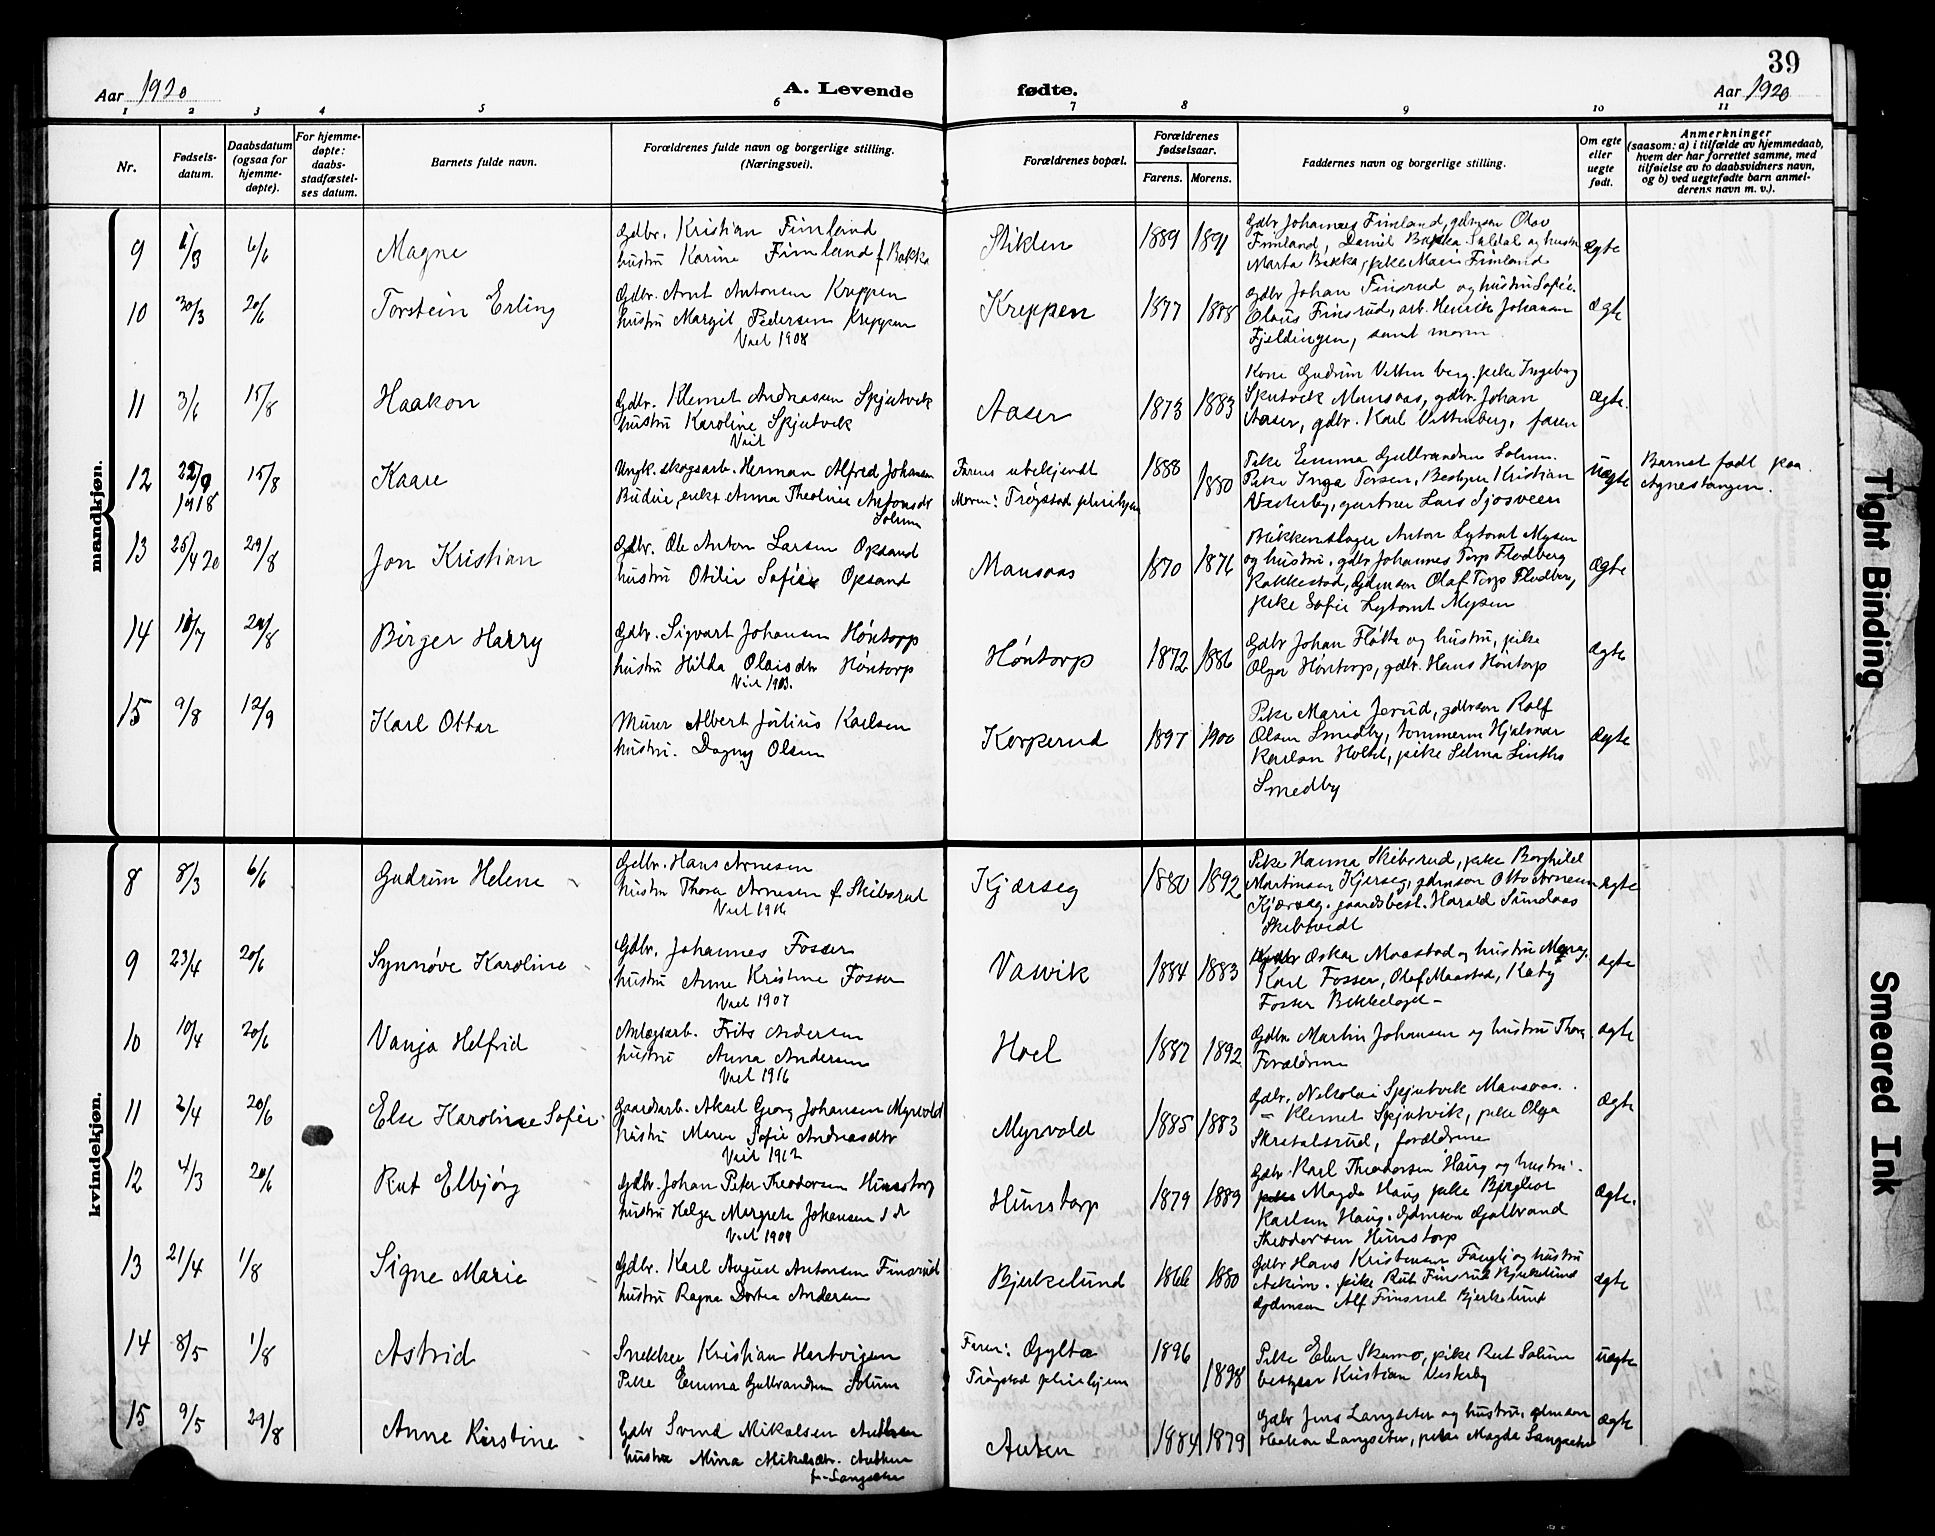 39
Aar 1920
A. Levende fødte.
Aar 1920
1 2 3 4 5 6 7 8 9 10 11
Nr.
Fødsels-
datum.
Daabsdatum
(ogsaa for
hjemme-
døpte).
For hjemme-
døpte:
daabs-
stadfæstel-
ses datum.
Barnets fulde navn.
Forældrenes fulde navn og borgerlige stilling.
(Næringsvei).
Forældrenes bopæl.
Forældrenes
fødselsaar.
Farens. Morens.
Faddernes navn og borgerlige stilling.
Om egte
eller
uegte
født.
Anmerkninger
(saasom: a) i tilfælde av hjemmedaab,
hvem der har forrettet samme, med
tilføielse av to daabsvidners navn,
og b) ved uegtefødte barn anmel-
derens navn m. v.).
mandkjøn.
9 1/3 6/6 Magne
Gdbr. Kristian Fimland
hustru Karine Fimland f. Bakka
Stikten 1889 1891
Gdbr Johannes Fimland, gdmsøn Olav
Fimland, Daniel Bakka Saldal og hustru
Marta Bakka, pike Marie Fimland
Ægte
10 30/3 20/6 Torstein Erling
Gdbr. Arnt Antonsen Kreppen
hustru Margit Pedersen Kreppen
Viet 1908
Kreppen 1877 1888
Gdbr Johan Finsrud og hustru Sofie.
Claus Finsrud, arb. Henrik Johansen
Fjeldingen, samt moren
Ægte
11 3/6 15/8 Haakon
Gdbr. Klemet Andreassen Skjutvik
hustru Karoline Skjutvik
Viet
Aaser 1873 1883
Kone Gudrun Vittenberg. pike Ingeborg
Skjutvik Mansaas, gdbr. Johan
Aaser, gdbr. Karl Vittenberg, faren
Ægte.
12 22/9 1918 15/8 Kaare
Ungk. skogsarb. Herman Alfred Johansen
Budeie, enke Anna Theoline Antonsdtr
Solum
Farens ubekjendt
Moren: Trøgstad pleiehjem
1888 1880
Pike Emma Gulbrandsen Solum.
Pike Inga Torsen, Bestyrer Kristian
Vesterby, gartner Lars Sjøsveen
Uægte
Barnet født paa
Agnestangen.
13 25/4 20 29/8 Jon Kristian
Gdbr. Ole Anton Larsen Opsand
hustru Otilie Sofie Opsand
Mansaas 1870 1876
Blikkenslager Anton Lytomt Mysen
og hustru, gdbr Johannes Torp Flodberg
Rakkestad, Gdmsøn Olaf Torp Flodberg,
pike Sofie Lytomt Mysen
Ægte
14 10/7 29/8 Birger Harry
Gdbr. Sigvart Johansen Høntorp
hustru Hilda Olaisdtr Høntorp
Viet 1903.
Høntorp 1872 1886
Gdbr Johan Fløtta og hustru, pike
Olga Høntorp, gdbr. Hans Høntorp
Ægte
15 9/8 12/9 Karl Ottar
Murer Albert Julius Karlsen
hustru. Dagny Olsen
Korperud 1897 1900
Pike Marie Jerud, gdbrsøn Rolf
Olsen Smedby, tømmerm Hjalmar
Karlsen Holtet, pike Selma
Smedby
Ægte
kvindekjøn.
8 8/3 6/6 Gudrun Helene
Gdbr. Hans Arnesen
hustru Thora Arnesen f. Skibsrud
Viet 1916
Kjærseg 1880 1892
Pike Hanna Skibsrud, pike Borghild
Martinsen Kjerseg, gdmsøn Otto Arnesen
Kjærseg. gaardsbest. Harald Sundaas
Skibtvedt
Ægte
9 23/4 20/6 Synnøve Karoline
Gdbr. Johannes Fosser
hustru Anne Kristine Fosser
Viet 1907
Vasvik 1884 1883
Gdbr Oskar Maastad og hustru
Karl Fosser, Olaf Maastad, Katy
Fosser Bekkelaget –
Ægte
10 10/4 20/6 Vanja Helfrid
Anlægsarb. Frits Andersen
hustru Anna Andersen
Viet 1916
Hoel 1887 1892
Gdbr. Martin Johansen og hustru Thora
Forældrene
Ægte
11 2/4 20/6 Else Karoline Sofie
Gaardarb. Aksel Georg Johansen Myrvold
hustru Maren Sofie Andreasdtr
Viet 1912
Myrvold 1885 1883
Gdbr. Nikolai Skjutvik Mansaas.
– Klemet Skjutvik, pike Olga
Skratalsrud, forældrene
Ægte
12 4/3 20/6 Rut Elbjørg
Gdbr. Johan Peter Theodorsen Hunstorp
hustru Helga Margrete Johansen
Viet 1909
Hunstorp 1879 1889
Gdbr. Karl Theodorsen Haug og hustru.
Magda Haug pike Borghor
Karlsen Haug. Gdmsøn Gulbrand
Theodorsen Hunstorp
Ægte.
13 21/4 1/8 Signe Marie
Gdbr. Karl August Antonsen Finsrud
hustru Ragna Dortea Andersen
Bjerkelund 1866 1880
Gdbr Hans Kristensen Fangli og hustru
Askim. pike Rut Finsrud Bjerkelund
Gdmsøn Alf Finsrud Bjerkelund
Ægte
14 8/5 1/8 Astrid
Snekker Kristian Hartvigsen
Pike Emma Gulbrandsen Solum
Faren: Gylta
Trøgstad pleiehjem
1896 1898
Pike Elen Skamo, pike Rut Solum
bestyrer Kristian Vesterby
Uægte
15 9/5 29/8 Anne Kirstine
Gdbr Svend Mikalsen Autnen
hustru Mina Mikalsdtr. Autnen
f. Langseter
Auten 1884 1879
Gdbr Jens Langseter og hustru, gdmsøn
Haakon Langseter, pike Magda Langseter
Ægte
Tight Binding
Smeared Ink